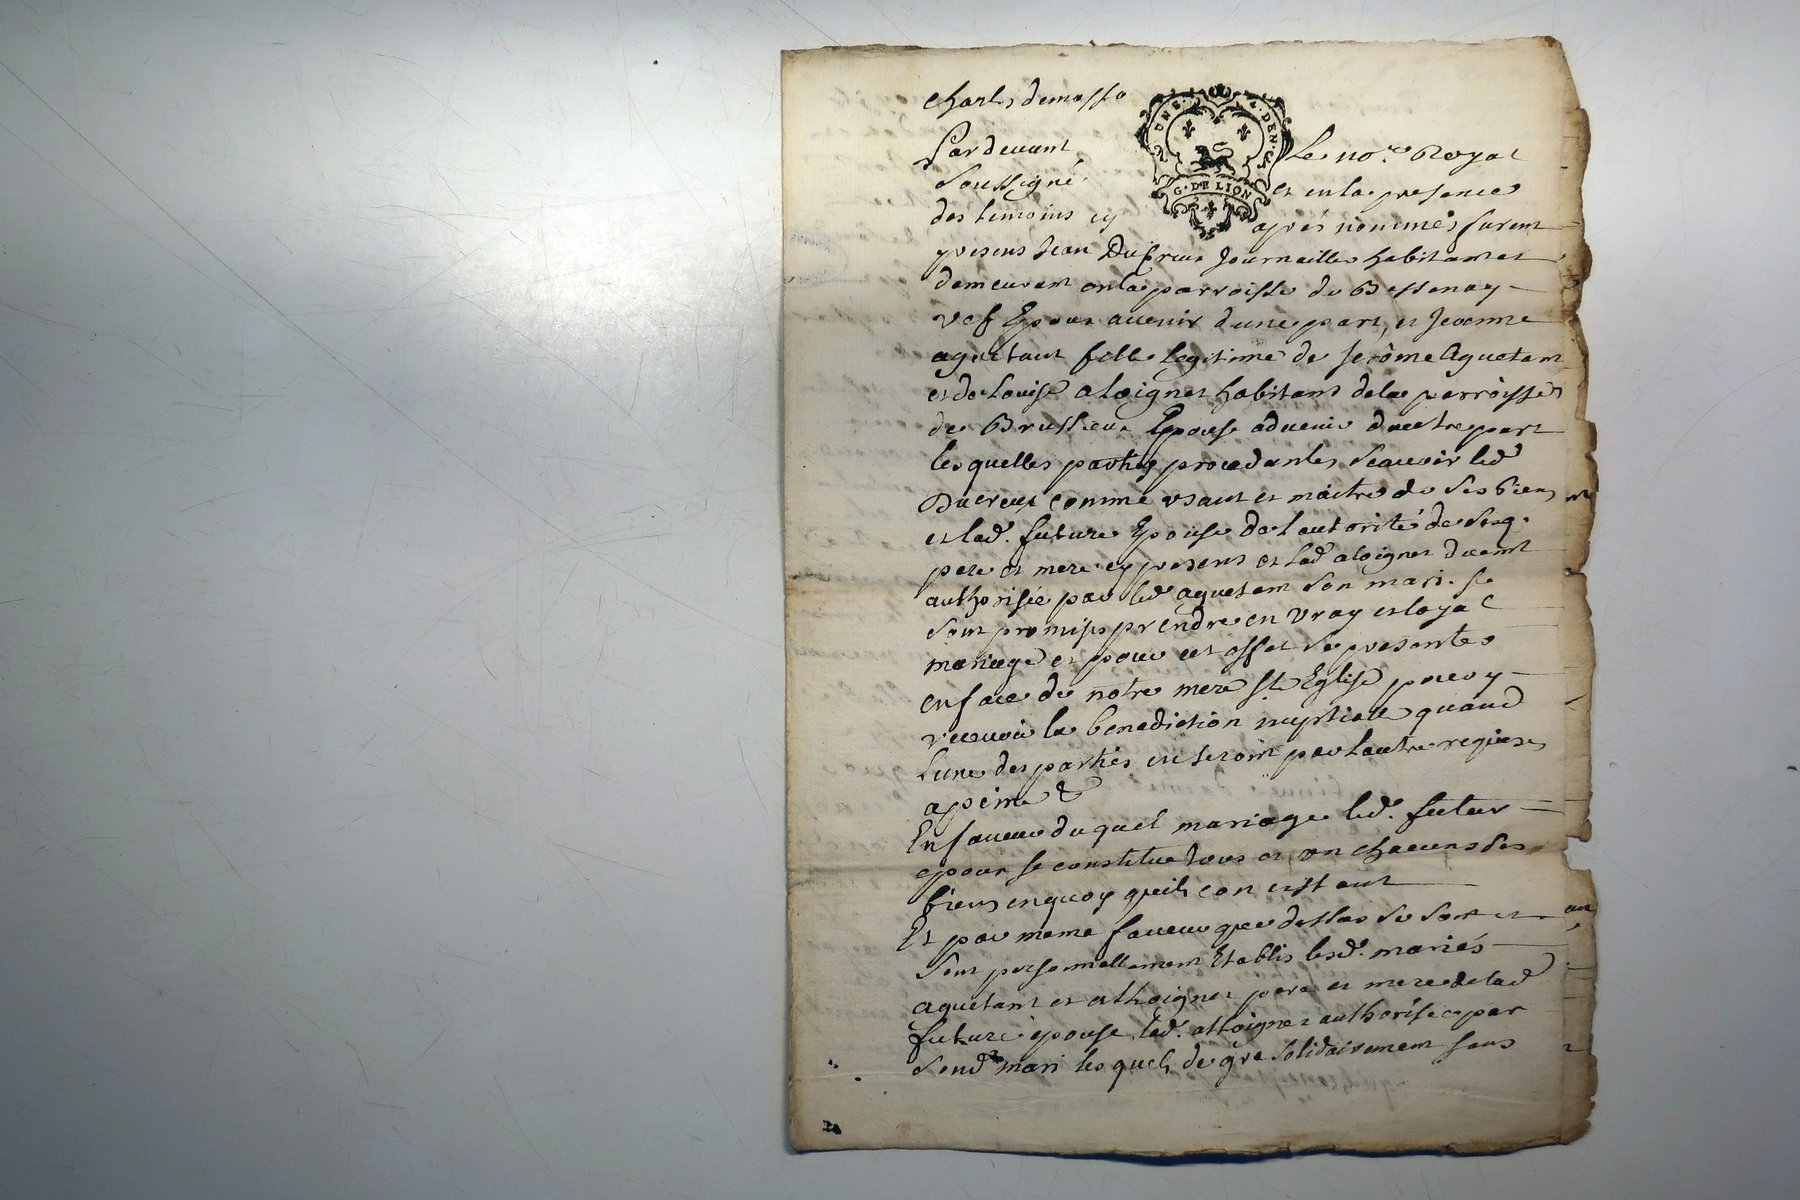 Pardevant Le no.re Royal
soussigné et en la presence
des temoins cy après nommés furent
presens Jean Ducreux Journaillier habitant et
demeurant en la parroisse de Bessenay
Epoux avenir d'une part, et Jeanne
aguetant fille legitime de Jerôme Aguetant
et de Louise habitant de la parroisse
de Brussieu Epouse advenir d'autre part
lesquelles parties procedantes sçauoir led
Ducreux comme usant et maitre de ses biens
et lad. future Epouse de l'autorité de sesd.
pere et mere cy presens et lad duemt
authorisée par led aguetant son mari. se
sont promis prendre en vray et loyal
mariage et pour cet effet se presenter
en face de notre mere ste Eglise pour y
recevoir la benediction nuptialle quand
L'une des parties en seront par l'autre requises
a peine &
En faveur duquel mariage led. futur
epoux se constitue tous et un chacuns ses
biens en quoy quils consistent
Et par meme faveur que dessus se sont et
sont personnellement Etablis lesd. mariés
aguetant et pere et mere de lad
future epouse lad. authorisée par
sond mari lesquels de gré solidairement sans
G. DE LION